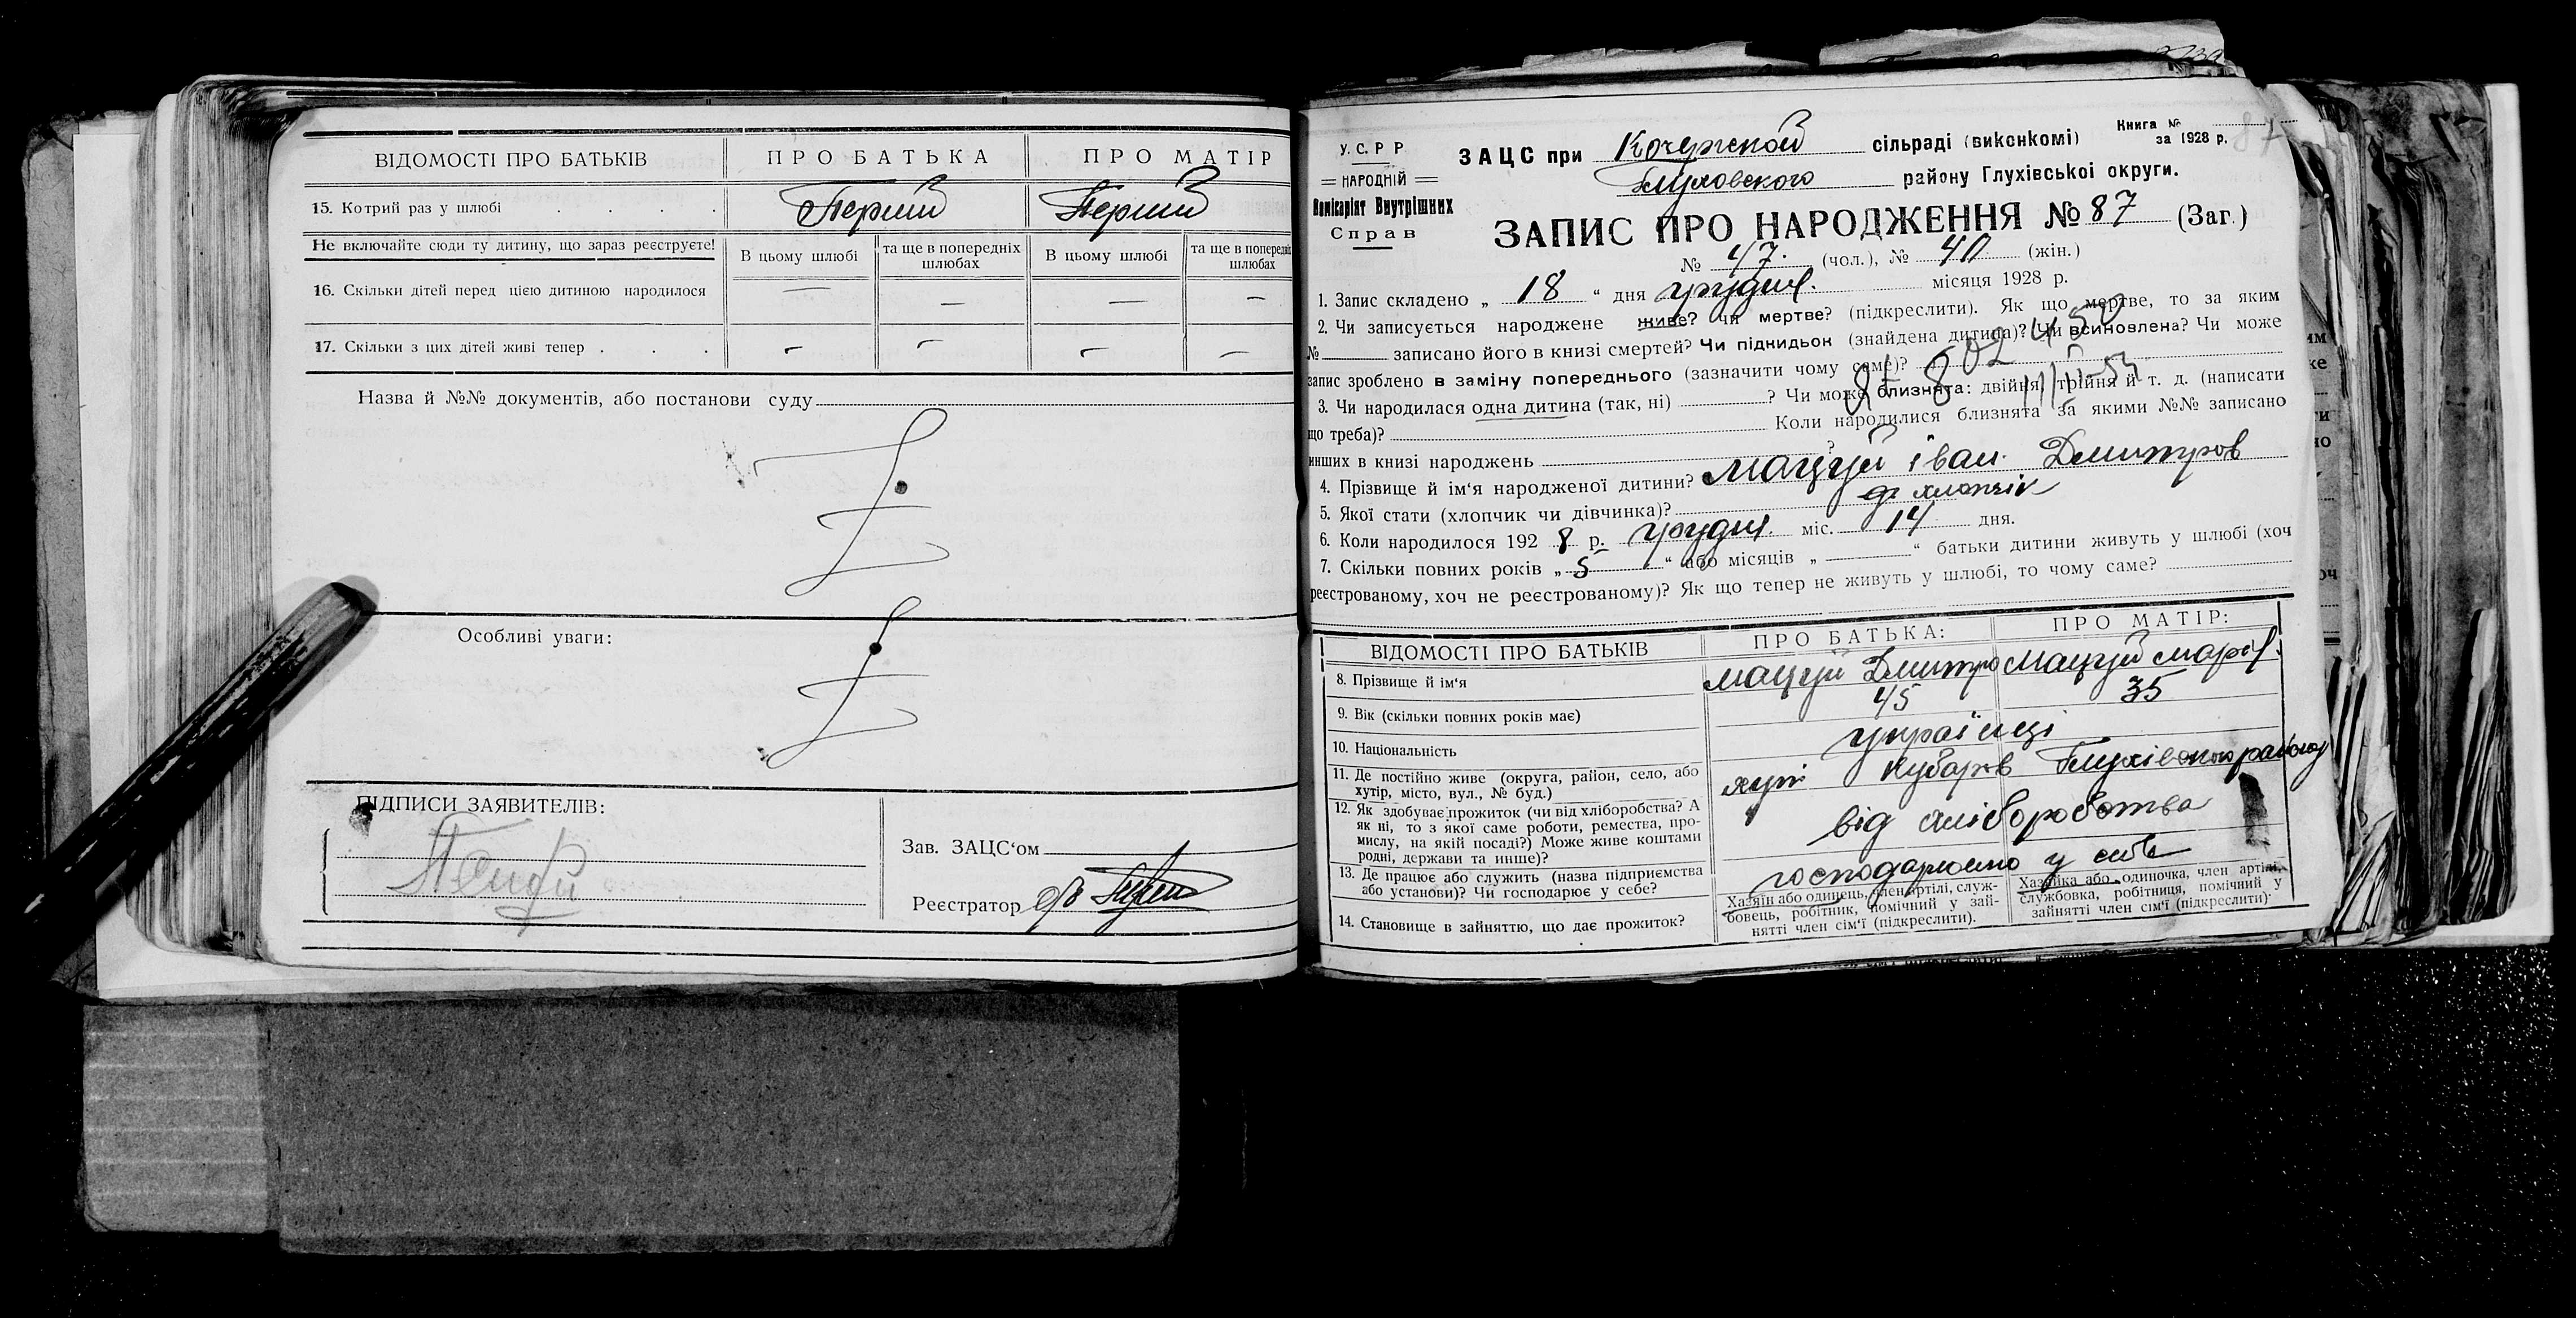 ВІДОМОСТІ ПРО БАТЬКІВ ПРО БАТЬКА ПРО МАТІР
15. Котрий раз у шлюбі . . . . Перший Перший
Не включайте сюди ту дитину, що зараз реєструєте!
В цьому шлюбі та ще в попередніх шлюбах В цьому шлюбі та ще в попередніх шлюбах
16. Скільки дітей перед цією дитиною народилося — — — —
17. Скільки з цих дітей живі тепер . . . — — — —
Назва й №№ документів, або постанови суду
Особливі уваги:
ПІДПИСИ ЗАЯВИТЕЛІВ:
Зав. ЗАЦС‘ом
Реєстратор
Книга №
за 1928 р.
87
У. С. Р Р.
НАРОДНІЙ
Комісаріят Внутрішних
Справ
ЗАЦС при Кочержской сільраді (виконкомі)
Глуховского району Глухівської округи.
ЗАПИС ПРО НАРОДЖЕННЯ № 87 (Заг.)
№ 47. (чол.), № 40 (жін.)
1. Запис складено „ 18 “ дня грудня. місяця 1928 р.
2. Чи записується народжене живе? чи мертве? (підкреслити). Як що мертве, то за яким
№ записано його в книзі смертей? Чи підкидьок (знайдена дитина)? Чи всиновлена? Чи може
запис зроблено в заміну попереднього (зазначити чому саме)?
3. Чи народилася одна дитина (так, ні) ? Чи може близнята: двійня, трійня й т. д. (написати
що треба)? Коли народилися близнята за якими №№ записано
инших в книзі народжень ?
4. Прізвище й ім‘я народженої дитини? Мацуй іван. Дмитров
5. Якої стати (хлопчик чи дівчинка)? хлопчік
6. Коли народилося 192 8 р. грудня. міс. 14 дня.
7. Скільки повних років „ 5 “ або місяців „ — “ батьки дитини живуть у шлюбі (хоч
реєстрованому, хоч не реєстрованому)? Як що тепер не живуть у шлюбі, то чому саме?
ВІДОМОСТІ ПРО БАТЬКІВ ПРО БАТЬКА: ПРО МАТІР:
8. Прізвище й ім‘я Мацуй Дмитро Мацуй Марія.
9. Вік (скільки повних років має) 45 35
10. Національність українці
11. Де постійно живе (округа, район, село, або
хутір, місто, вул., № буд.) хут Кубарів Глухівского району
12. Як здобуває прожиток (чи від хліборобства? А
як ні, то з якої саме роботи, ремества, про-
мислу, на якій посаді?) Може живе коштами
родні, держави та инше)? від хліборобства
13. Де працює або служить (назва підприємства
або установи)? Чи господарює у себе? господарюемо у себе
14. Становище в зайняттю, що дає прожиток?
Хазяїн або одинець, член артілі, служ-
бовець, робітник, помічний у зай-
нятті член сім‘ї (підкреслити).
Хазяйка або одиночка, член артілі,
службовка, робітниця, помічний у
зайнятті член сім‘ї (підкреслити)